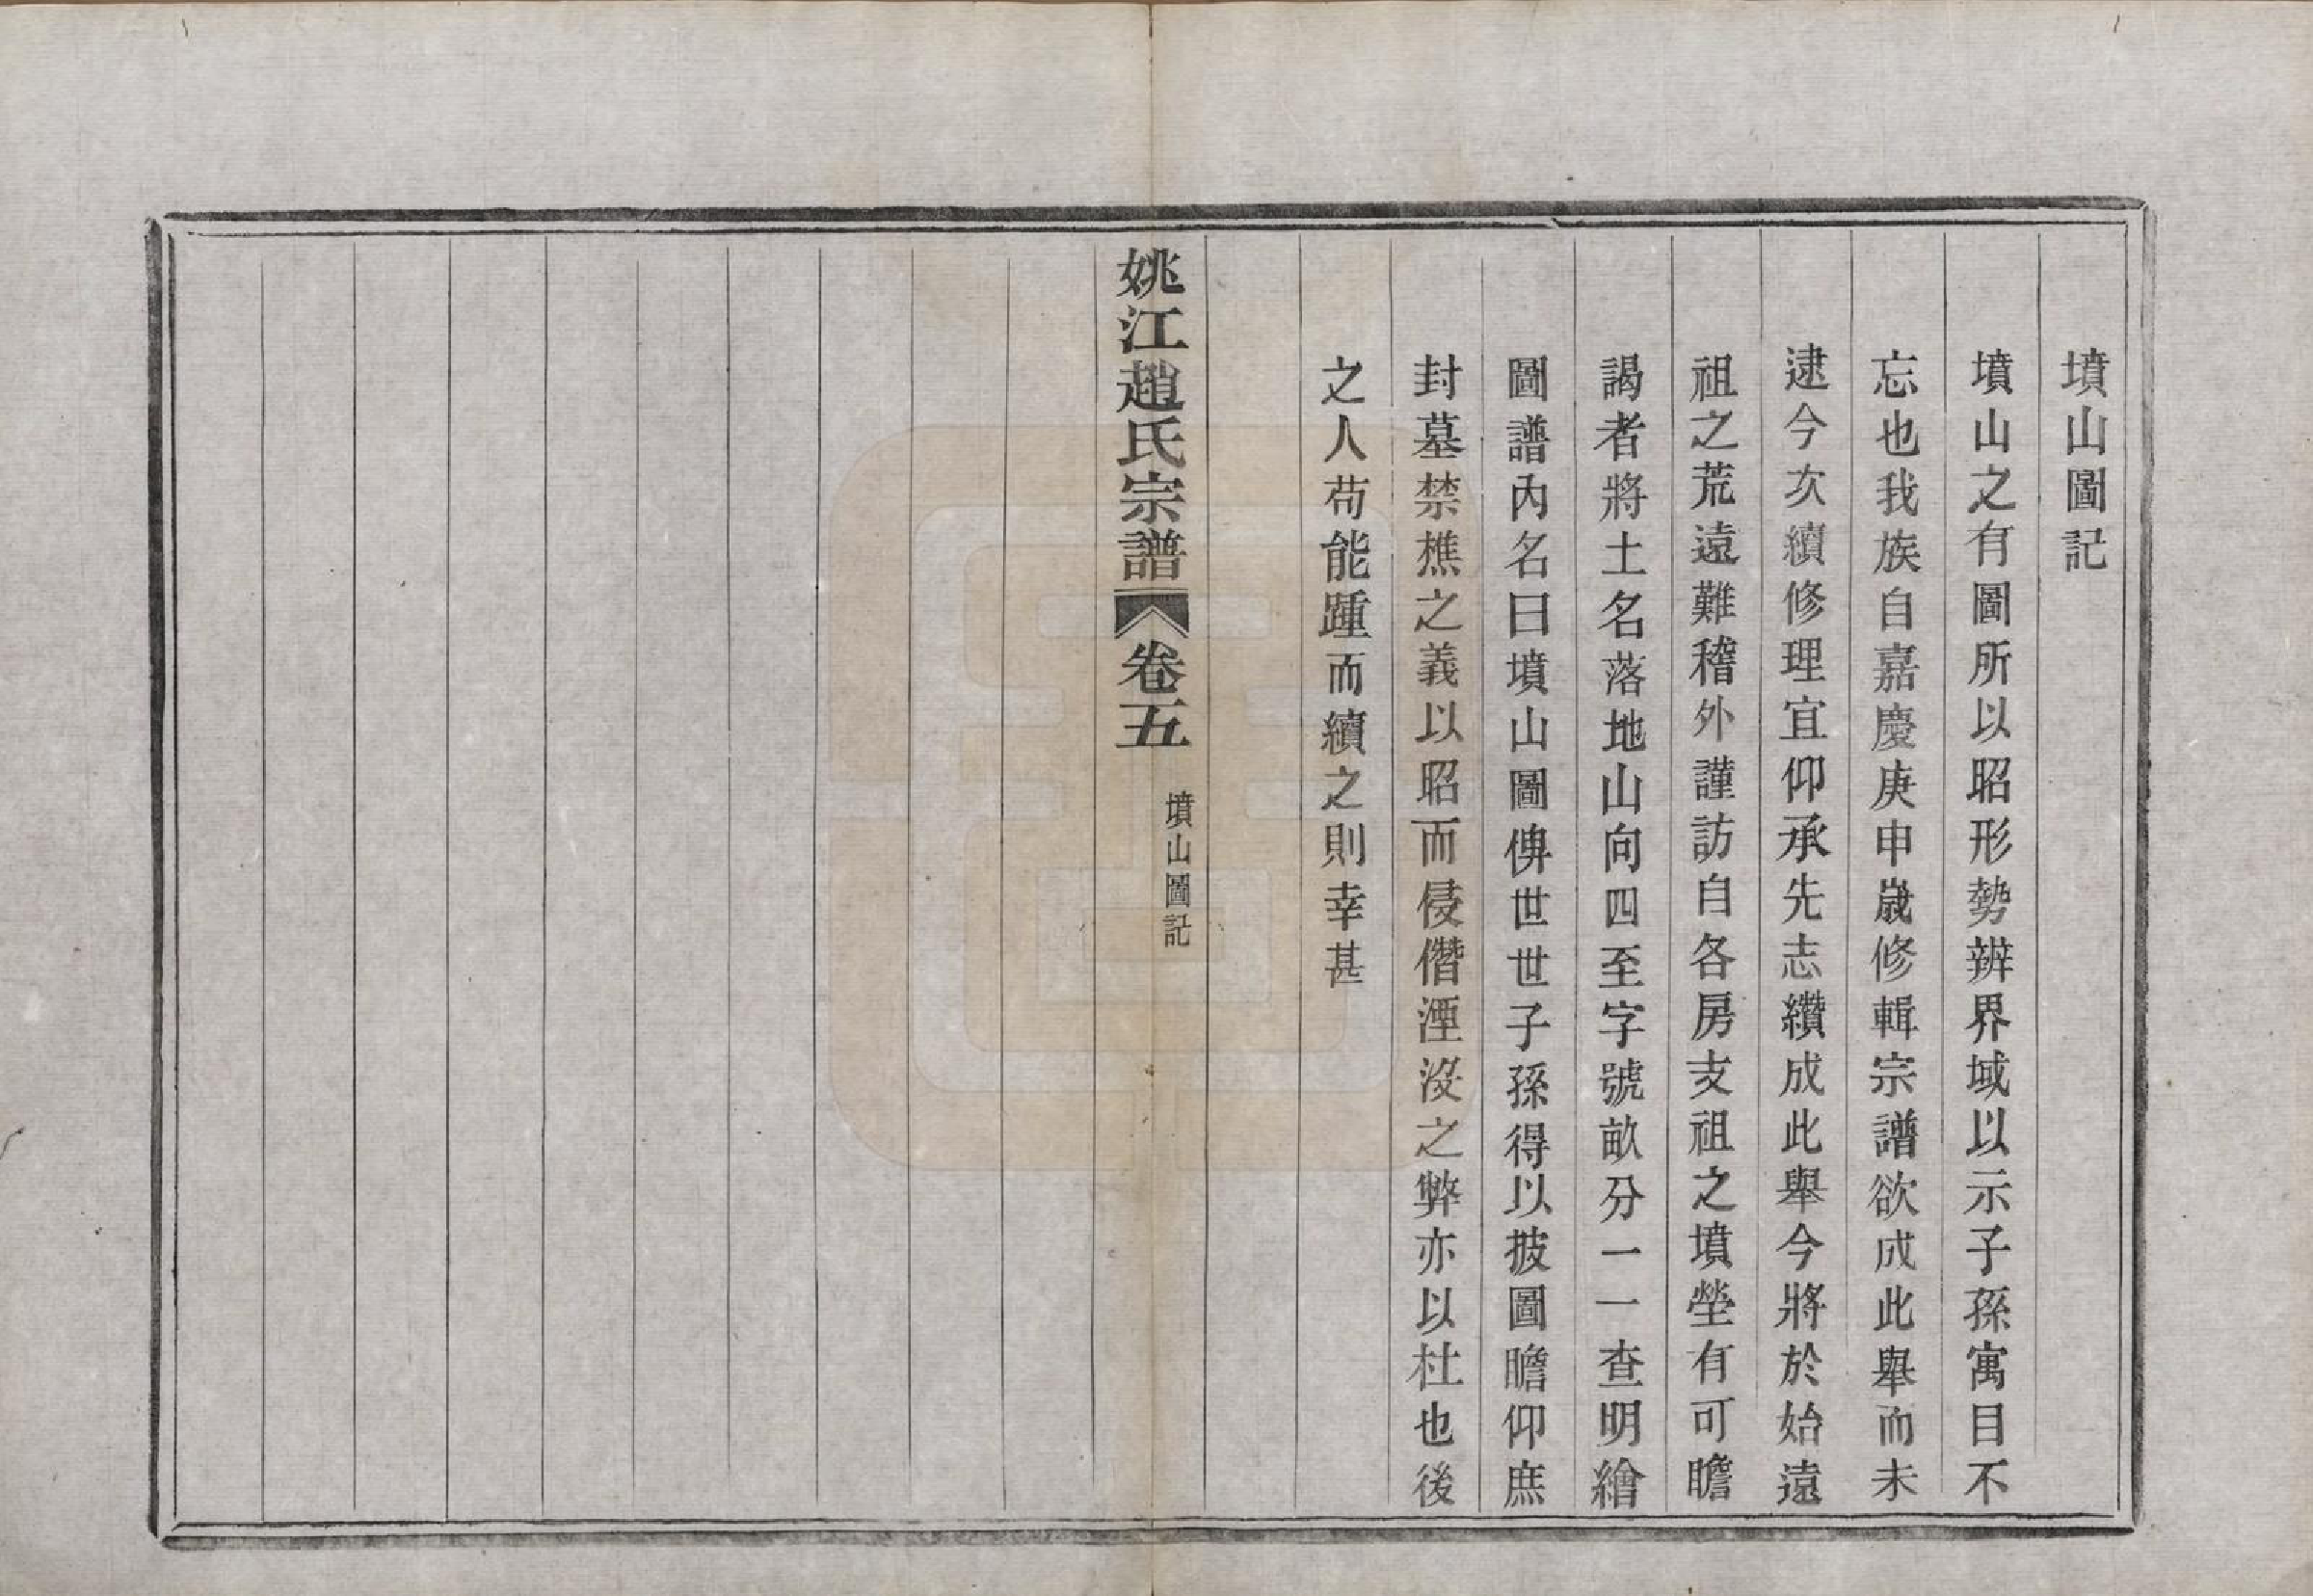 墳山圖記
墳山之有圖所以昭形勢辨界域以示子孫寓目不
忘也我族自嘉慶庚申歲修輯宗譜欲成此舉而未
逮今次續修理宜仰承先志纘成此舉今將於始遠
祖之荒遠難稽外謹訪自各房支祖之墳塋有可瞻
謁者將土名落地山向四至字號畝分一一查明繪
圖譜內名曰墳山圖俾世世子孫得以披圖瞻仰庶
封墓禁樵之義以昭而侵僭湮沒之弊亦以杜也後
之人苟能踵而續之則幸甚
姚江趙氏宗譜 卷五 墳山圖記